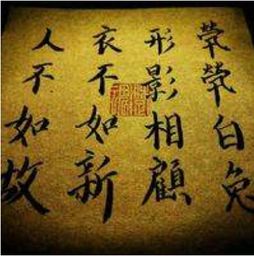 茕茕白兔
形影相顧
衣不如新
人不如故